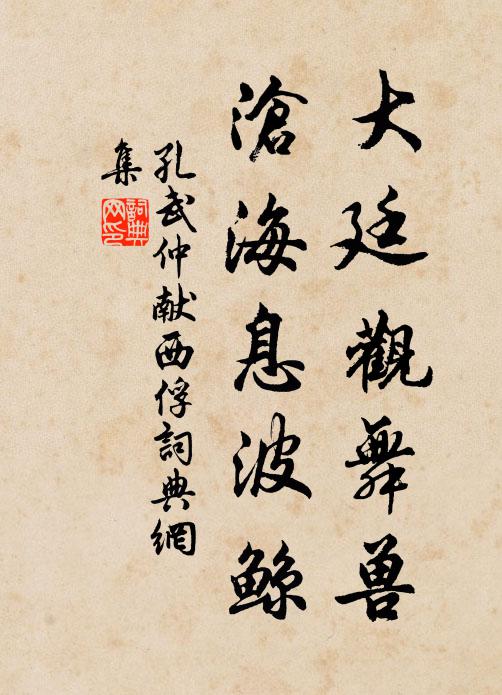 大廷觀舞兽
滄海息波鲸
孔武仲献西俘詞典網
集
詞典網印